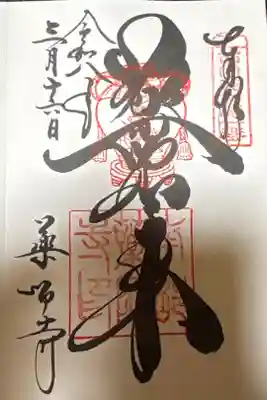 奉拝
薬師如来
令和八年
三月十六日
藥師寺